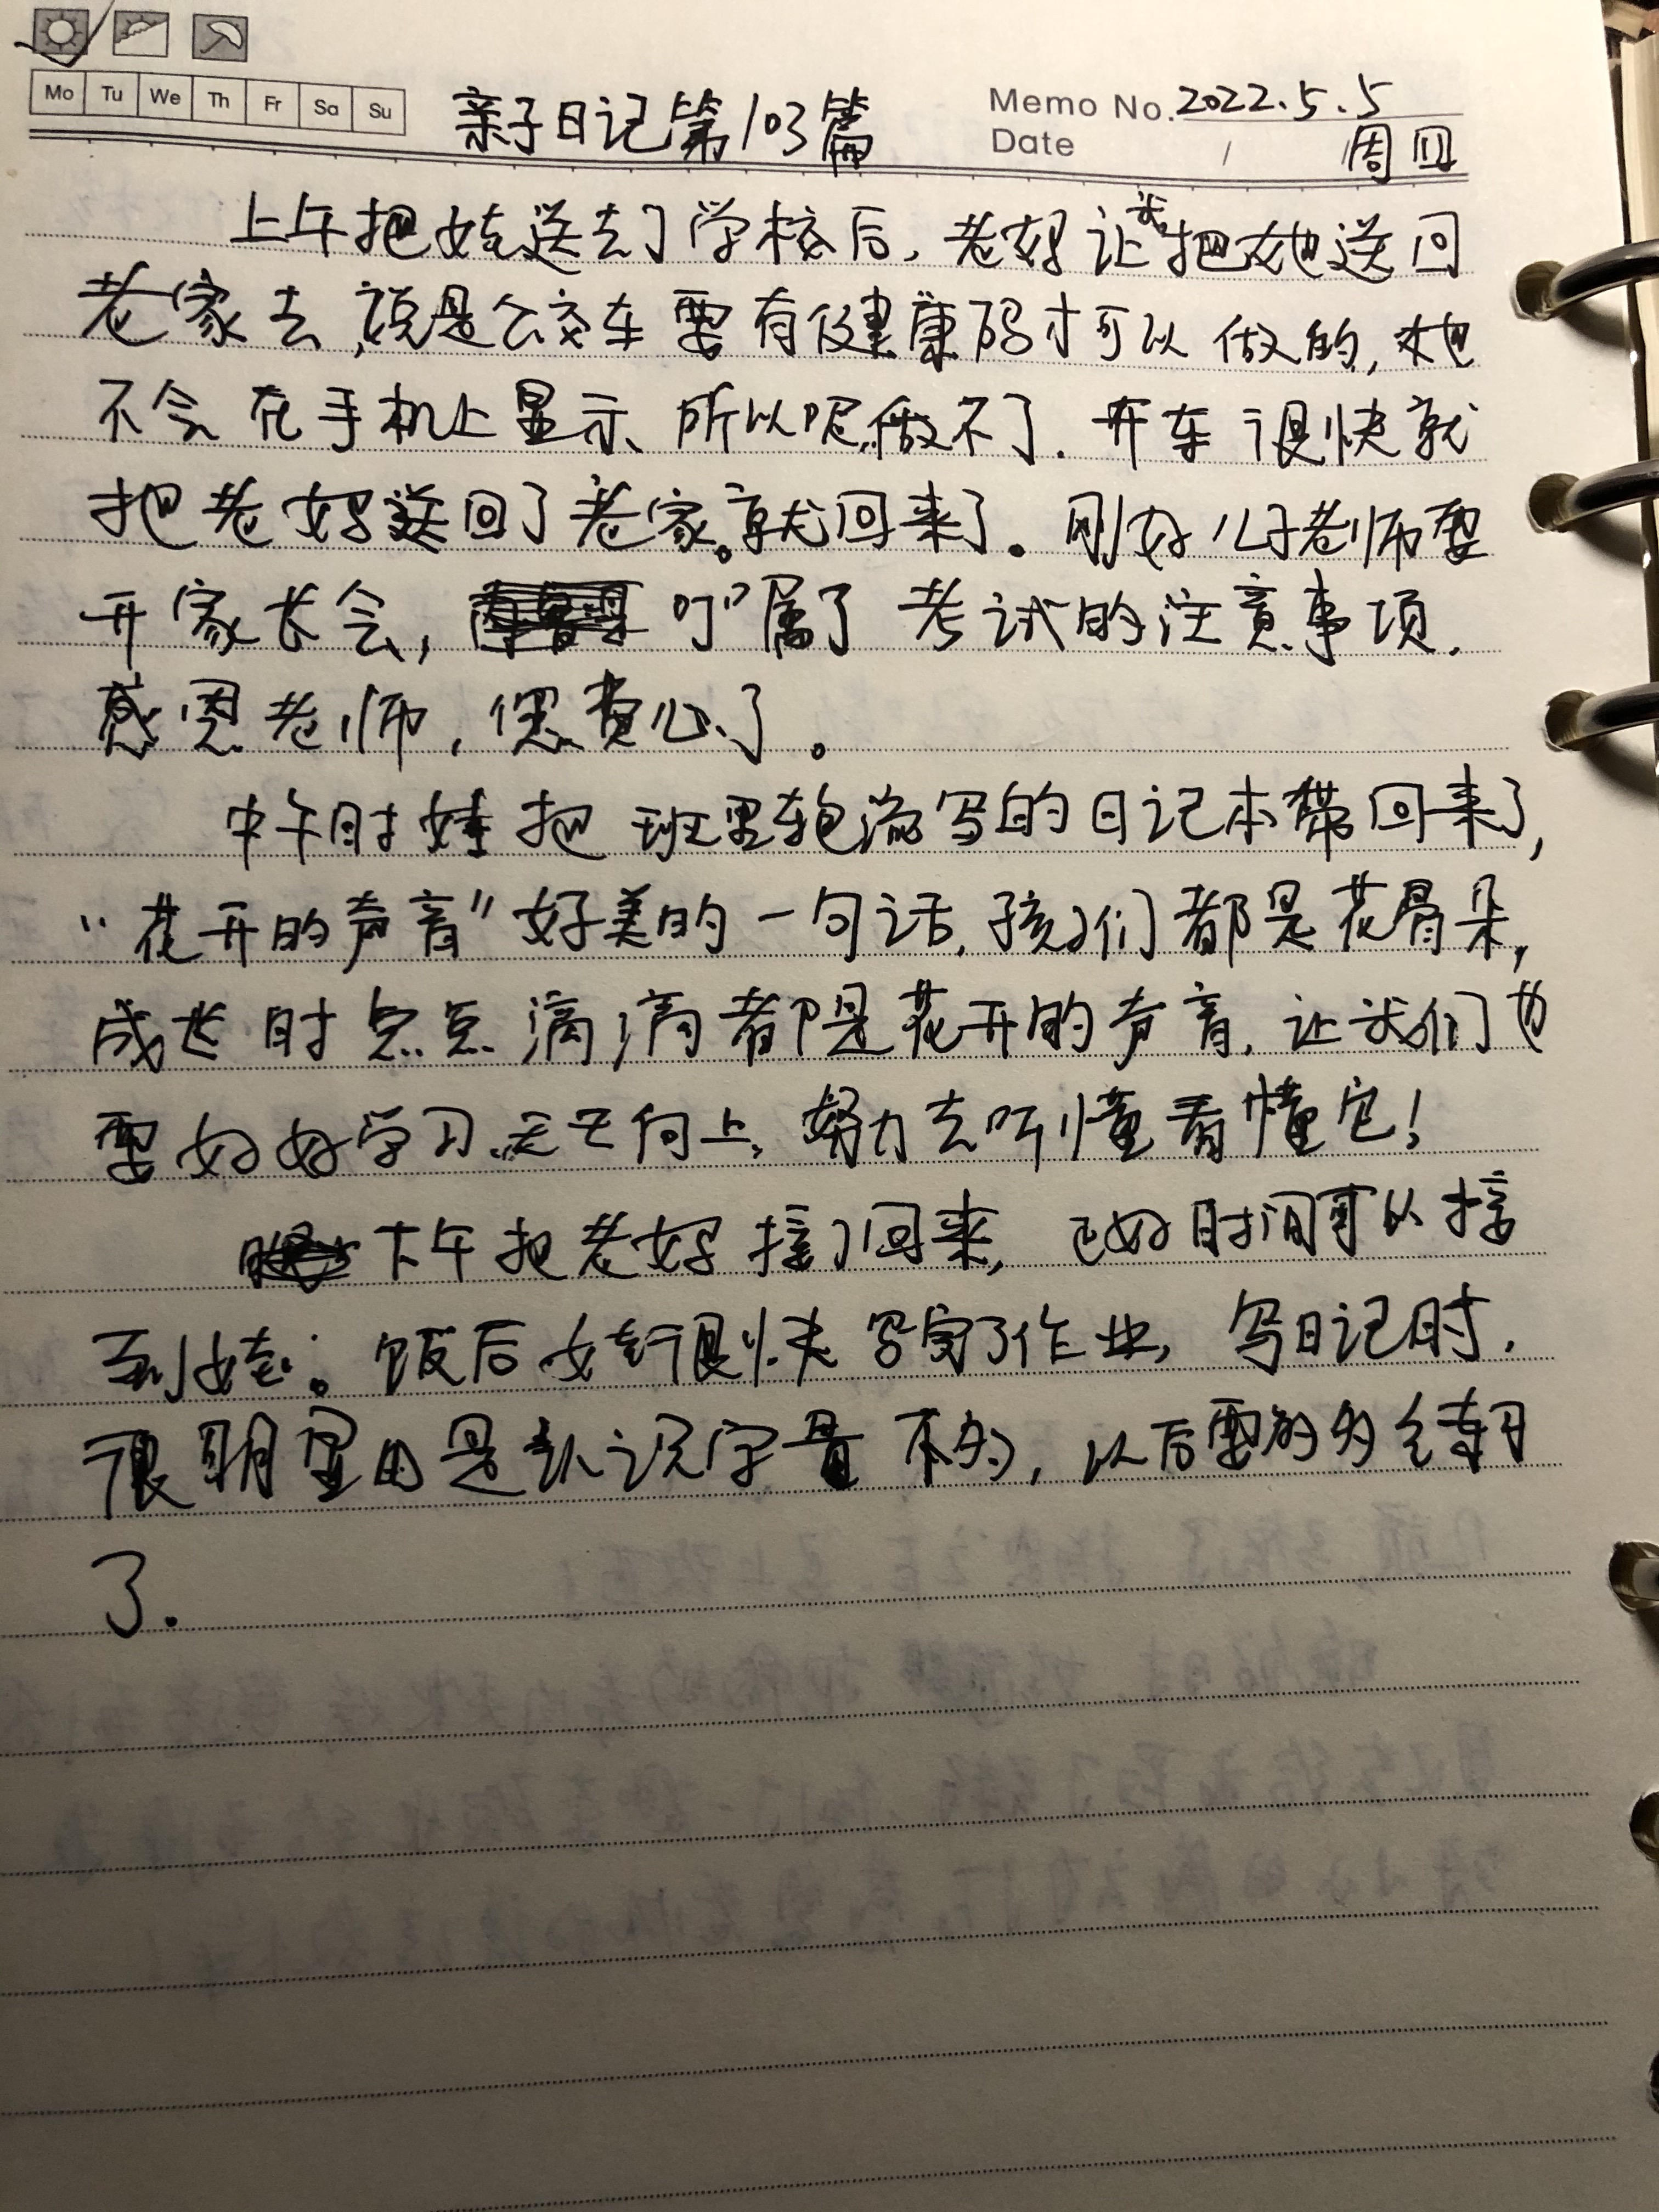 Mo Tu We Th Fr Sa Su
亲子日记第103篇
Memo No. 2022.5.5
Date / / 周四
上午把娃送去了学校后,老妈让我把她送回
老家去,说是公交车要有健康码才可以做的,她
不会在手机上显示、所以呢做不了.开车很快就
把老妈送回了老家。就回来了。刚好儿子老师要
开家长会,叮嘱了考试的注意事项.
感恩老师,您费心了。
中午时娃把班里轮流写的日记本带回来了,
“花开的声音”好美的一句话,孩子们都是花骨朵,
成长时点点滴滴都是花开的声音,让我们也
要好好学习,天天向上,努力去听懂看懂它!
下午把老妈接了回来,正好时间可以接
到娃。饭后娃很快写完了作业,写日记时.
很明显的是认识字量不多,以后要多多练习
了.